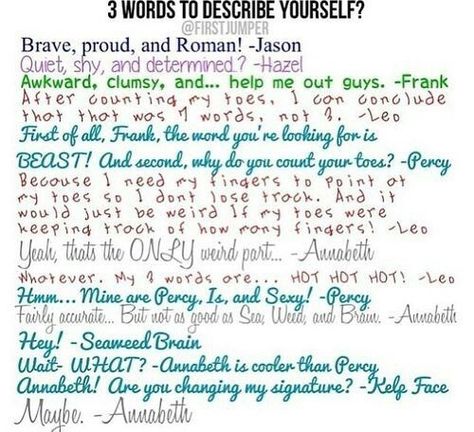 3 WORDS TO DESCRIBE YOURSELF?
@FIRSTJUMPER
Brave, proud, and Roman! -Jason
Quiet, shy, and determined? -Hazel
Awkward, clumsy, and... help me out guys. -Frank
After counting my toes, I can conclude
that that was 7 words, not 3. -Leo
First of all, Frank, the word you're looking for is
BEAST! And second, why do you count your toes? -Percy
Because I need my fingers to point at
my toes so I dont lose track. And it
would just be weird if my toes were
keeping track of how many fingers! -Leo
Yeah, thats the ONLY weird part... -Annabeth
Whatever. My 3 words are... HOT HOT HOT! -Leo
Hmm... Mine are Percy, Is, and Sexy! -Percy
Fairly accurate... But not as good as Sea, Weed, and Brain. -Annabeth
Hey! -Seaweed Brain
Wait- WHAT? -Annabeth is cooler than Percy
Annabeth! Are you changing my signature? -Kelp Face
Maybe. -Annabeth